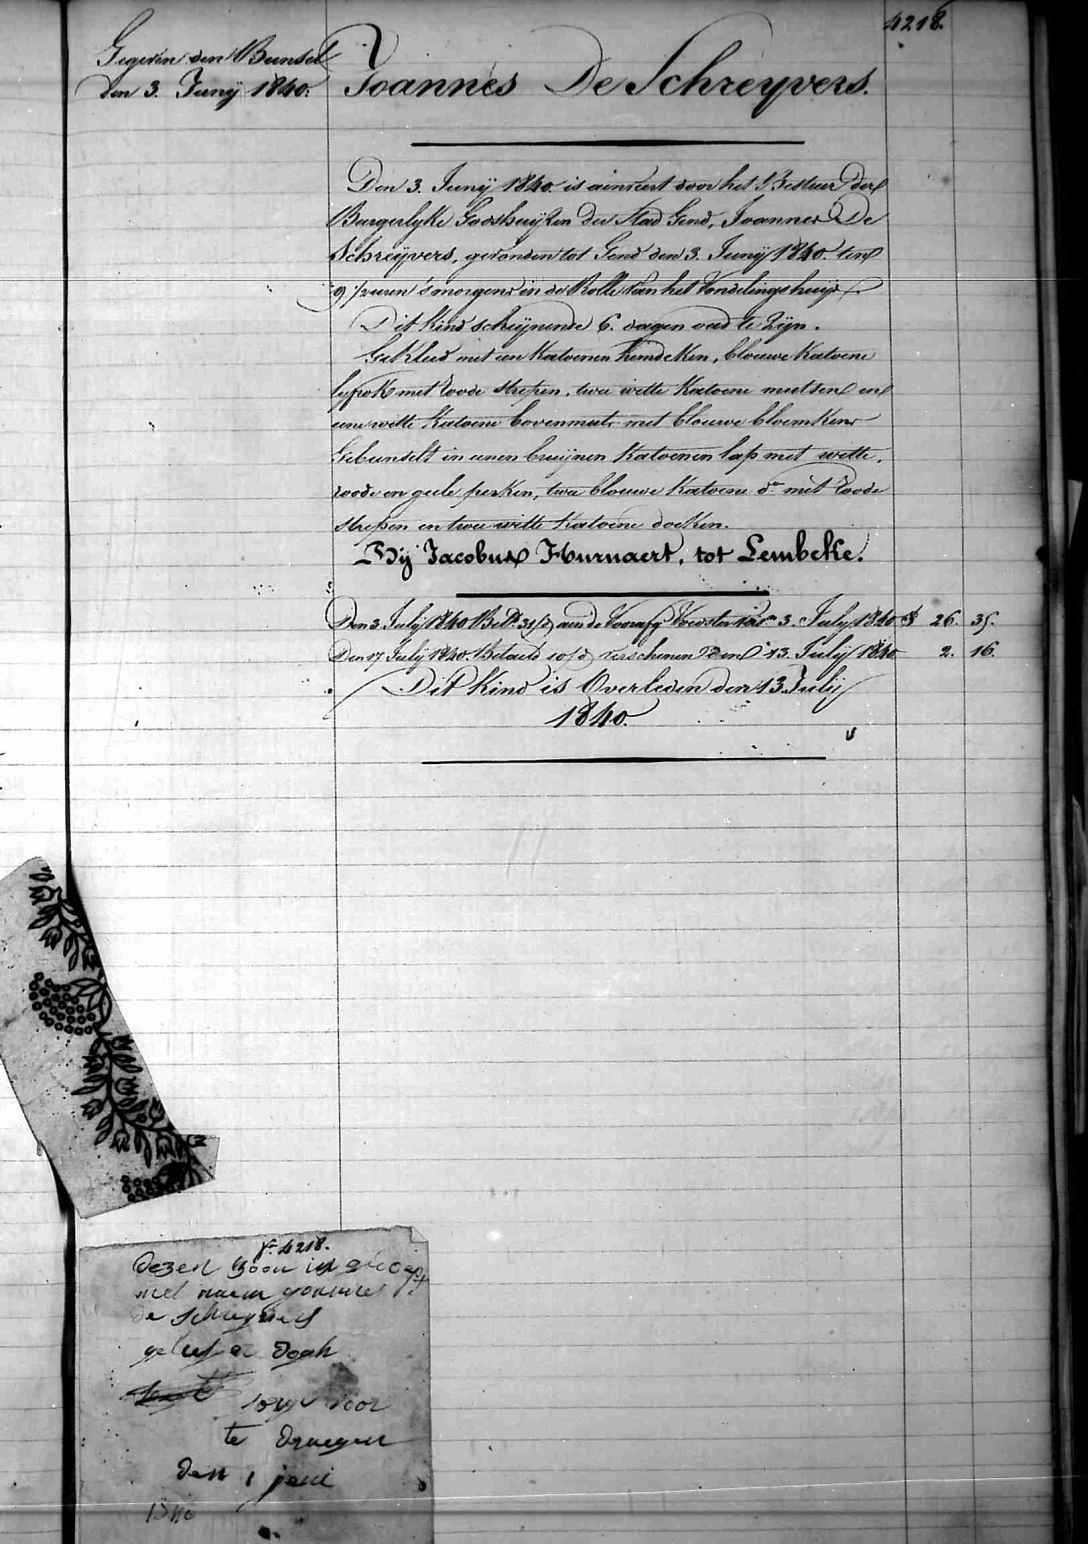 4218.
Gegeven den Bunsel
den 3. Junij 1840.
Joannes De Schreyvers.
Den 3. Junij 1840. is aenveert door het Bestuer der
Burgerlyke Godshuijzen der Stad Gend, Joannes De
Schreyvers, gevonden tot Gend den 3. Junij 1840. ten
9 ½ uren 's morgens in de Rolle van het Vondelingshuijs.
Dit kind schijnende 6. dagen oud te zijn.
Gekleed met een katoenen hemdeken, blouwe katoene
lyfrok met roode strepen, twee witte katoene mutsen en
eene witte katoene bovenmuts met blouwe bloemkens
Gebunselt in eenen bruijnen katoenen lap met witte,
roode en geele perken, twee blouwe katoene do met roode
strepen en twee witte katoene doeken.
Bij Jacobus Hurnaert, tot Lembeke.
Den 3. July 1840 Bet. 31/d aen de Voedster 3. July 1840 26. 35.
Den 17 July 1840. Betaeld 10/d verschenen den 13. July 1840 2. 16.
Dit kind is Overleden den 13 July
1840.
4218.
dezen zoon is
met naem
de schreyvers
gelief er
sorge voor
te draegen
den 1 juni